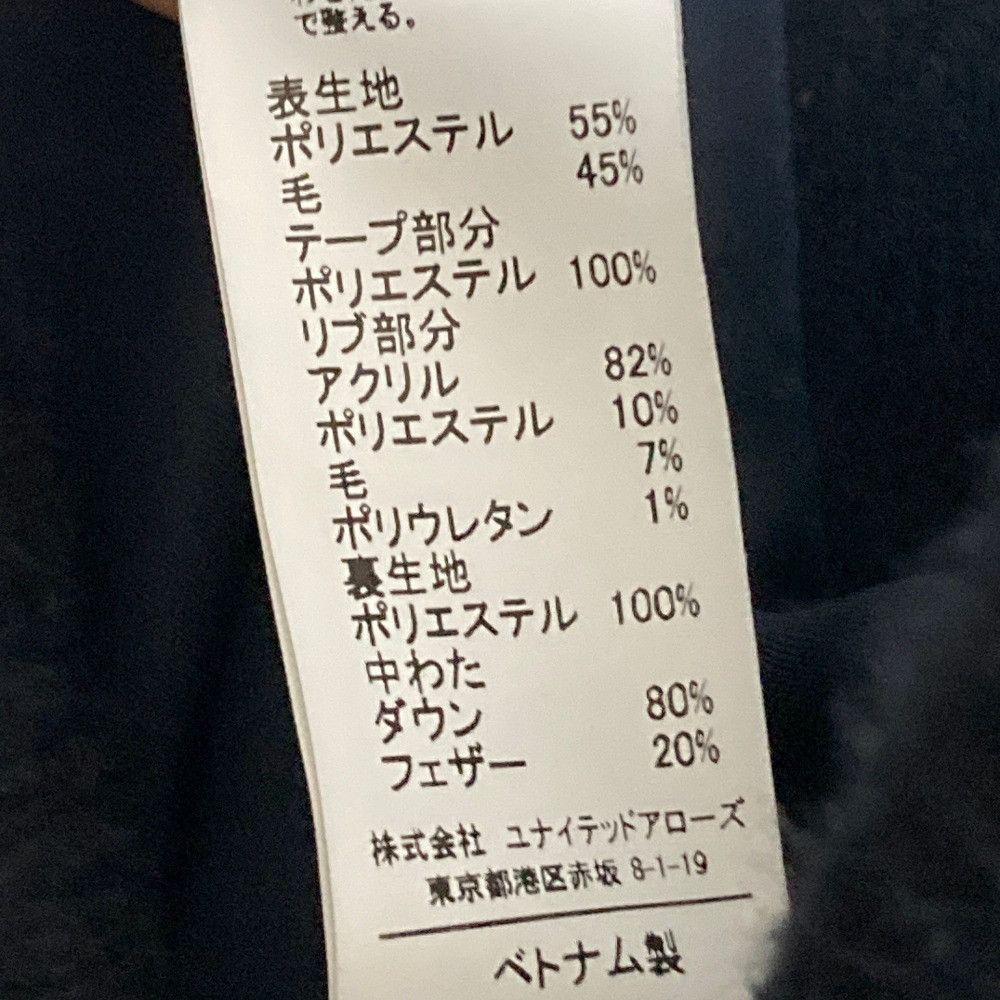 で整える。
表生地
ポリエステル 55%
毛 45%
テープ部分
ポリエステル 100%
リブ部分
アクリル 82%
ポリエステル 10%
毛 7%
ポリウレタン 1%
裏生地
ポリエステル 100%
中わた
ダウン 80%
フェザー 20%
株式会社 ユナイテッドアローズ
東京都港区赤坂 8-1-19
ベトナム製